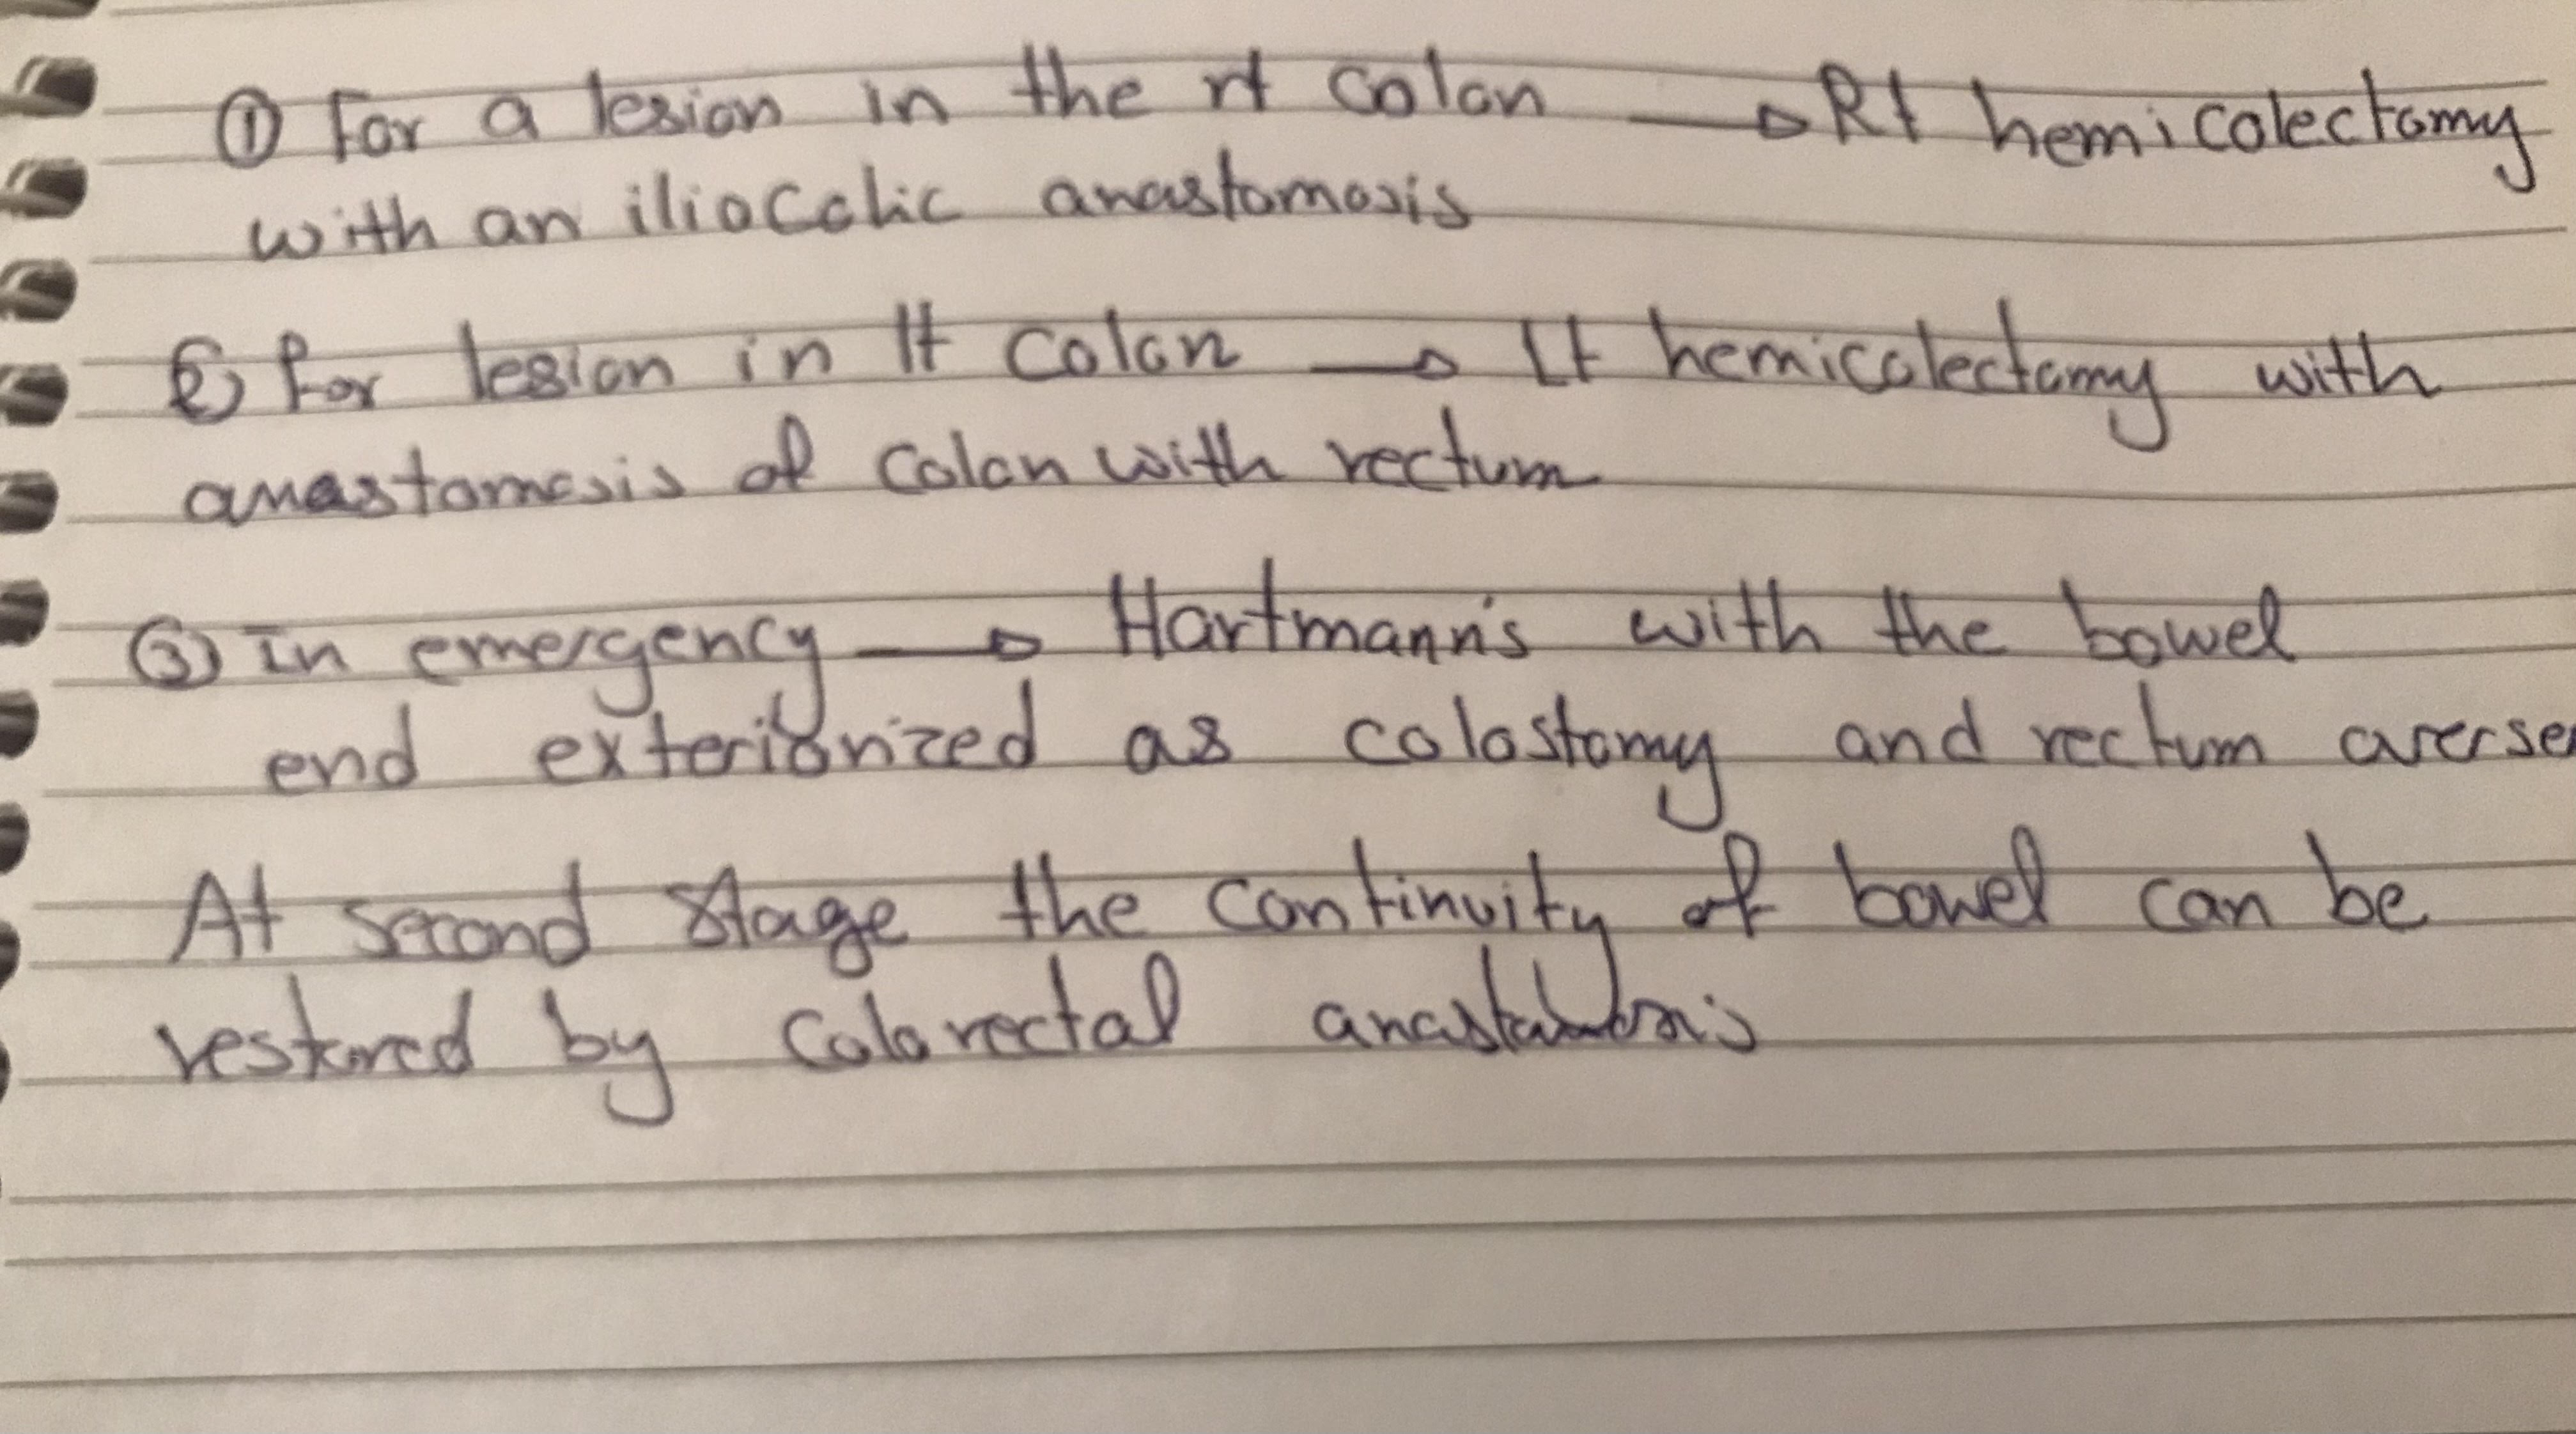 ① For a lesion in the rt colon → Rt hemicolectomy
with an iliocolic anastomosis
② for lesion in lt colon → Lt hemicolectomy with
anastomosis of colon with rectum
③ In emergency → Hartmann's with the bowel
end exteriorized as colostomy and rectum
At second stage the continuity of bowel can be
restored by colorectal anastomosis